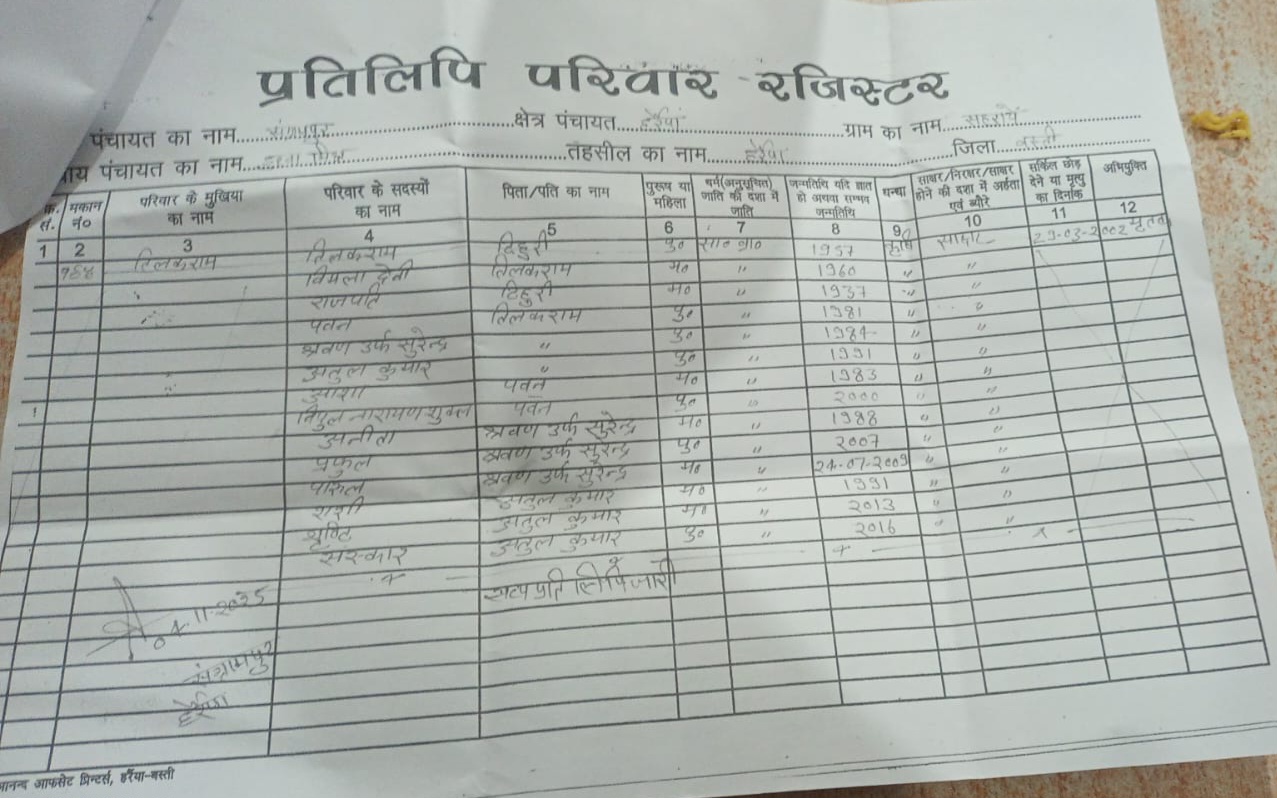 प्रतिलिपि परिवार रजिस्टर
पंचायत का नाम क्षेत्र पंचायत हर्रैया ग्राम का नाम
पंचायत का नाम तहसील का नाम हर्रैया जिला बस्ती
क्र. सं. मकान नं० परिवार के मुखिया का नाम परिवार के सदस्यों का नाम पिता/पति का नाम पुरूष या महिला धर्म(अनुसूचित) जाति की दशा में जाति जन्मतिथि यदि ज्ञात हो अथवा सम्भव जन्मतिथि धन्धा साक्षर/निरक्षर/साक्षर होने की दशा में अर्हता एवं ब्यौरे सर्किल छोड़ देने या मृत्यु का दिनांक अभियुक्ति
1 2 3 4 5 6 7 8 9 10 11 12
तिलकराम तिलकराम टिहुरी पु० सा० ब्रा० 1957 कृषि साक्षर 29-03-2002 मृतक
विमला देवी तिलकराम म० " 1960 " "
राजपति टिहुरी म० " 1937 " "
पवन तिलकराम पु० " 1981 " "
श्रवण उर्फ सुरेन्द्र " पु० " 1984 " "
अतुल कुमार " पु० " 1991 " "
आशा पवन म० " 1983 " "
विपुल नारायण शुक्ल पवन पु० " 2000 " "
अनीता श्रवण उर्फ सुरेन्द्र म० " 1988 " "
प्रफुल श्रवण उर्फ सुरेन्द्र पु० " 2007 " "
पारुल श्रवण उर्फ सुरेन्द्र म० " 24-07-2009 " "
राशी अतुल कुमार म० " 1991 " "
अतुल कुमार म० " 2013 " "
संस्कार अतुल कुमार पु० " 2016 " "
सत्य प्रतिलिपि जारी
04-11-2025
संग्रामपुर
हर्रैया
आनन्द आफसेट प्रिन्टर्स, हर्रैया-बस्ती